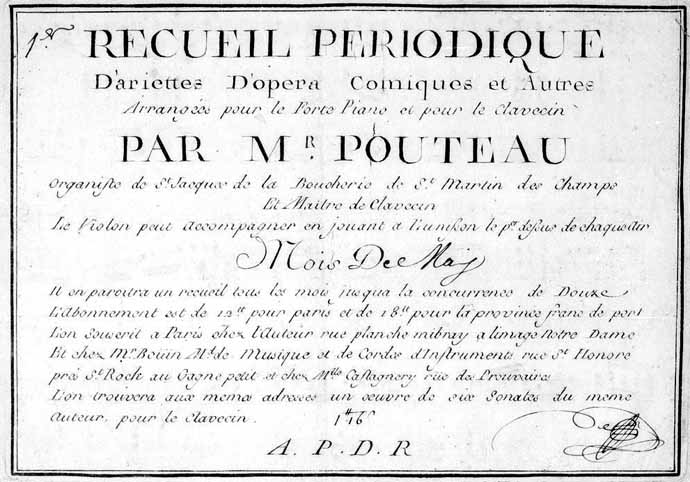 1er RECUEIL PERIODIQUE
D'ariettes D'opera Comiques et Autres
Arrangées pour le Forte Piano et pour le Clavecin
PAR MR. POUTEAU
Organiste de St. Jacques de la Boucherie de St. Martin des Champs
Et Maitre de Clavecin
Le Violon peut accompagner en jouant a l'unisson le pr. dessus de chaque Air
Mois De May
Il en paroitra un recueil tous les mois jusqua la concurrence de Douze
L'Abonnement est de 12tt pour paris et de 18tt pour la province franc de port
L'on souscrit a Paris chez l'Auteur rue planche mibray a l'image Notre Dame
Et chez Mr. Boüin Md. de Musique et de Cordes d'Instruments rue St. Honoré
près St. Roch au Gagne petit et chez Mlle Castagnery rüe des Prouvaires
L'on trouvera aux memes adresses un oeuvre de six Sonates du meme
Auteur pour le Clavecin.
A. P. D. R